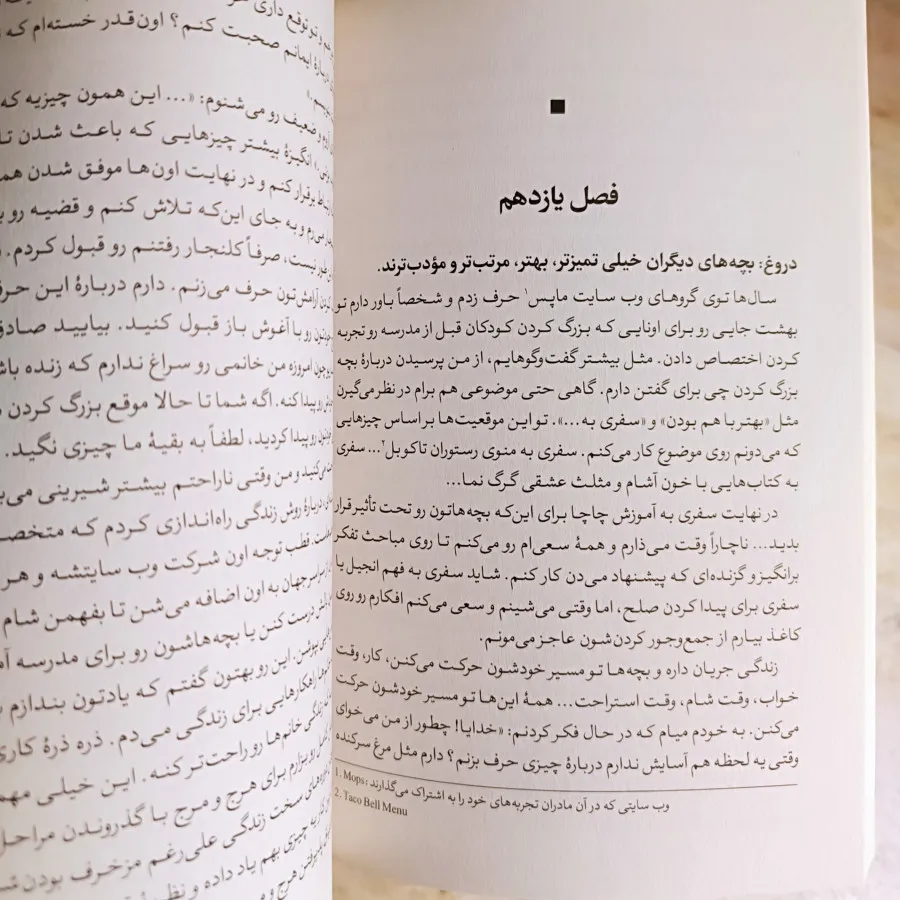 فصل یازدهم
دروغ: بچه‌های دیگران خیلی تمیزتر، بهتر، مرتب‌تر و مؤدب‌ترند.
سال‌ها توی گروهای وب سایت ماپس۱ حرف زدم و شخصاً باور دارم تو
بهشت جایی رو برای اونایی که بزرگ کردن کودکان قبل از مدرسه رو تجربه
کردن اختصاص دادن. مثل بیشتر گفت‌وگوهایم، از من پرسیدن دربارهٔ بچه
بزرگ کردن چی برای گفتن دارم. گاهی حتی موضوعی هم برام در نظر می‌گیرن
مثل «بهتر با هم بودن» و «سفری به...». تو این موقعیت‌ها بر اساس چیزهایی
که می‌دونم روی موضوع کار می‌کنم. سفری به منوی رستوران تاکوبل۲... سفری
به کتاب‌هایی با خون آشام و مثلث عشقی گرگ نما...
در نهایت سفری به آموزش چاچا برای این‌که بچه‌هاتون رو تحت تأثیر قرار
بدید... ناچاراً وقت می‌ذارم و همهٔ سعی‌ام رو می‌کنم تا روی مباحث تفکر
برانگیز و گزنده‌ای که پیشنهاد می‌دن کار کنم. شاید سفری به فهم انجیل یا
سفری برای پیدا کردن صلح، اما وقتی می‌شینم و سعی می‌کنم افکارم رو روی
کاغذ بیارم از جمع‌وجور کردن‌شون عاجز می‌مونم.
زندگی جریان داره و بچه‌ها تو مسیر خودشون حرکت می‌کنن، کار، وقت
خواب، وقت شام، وقت استراحت... همهٔ این‌ها تو مسیر خودشون حرکت
می‌کنن. به خودم میام که در حال فکر کردنم: «خدایا! چطور از من می‌خوای
وقتی یه لحظه هم آسایش ندارم دربارهٔ چیزی حرف بزنم؟ دارم مثل مرغ سرکنده
1. Mops: وب سایتی که در آن مادران تجربه‌های خود را به اشتراک می‌گذارند
2. Taco Bell Menu
و تو توقع داری
دربارهٔ ایمانم صحبت کنم؟ اون‌قدر خسته‌ام که
و ضعیف رو می‌شنوم: «... این همون چیزیه که
انگیزهٔ بیشتر چیزهایی که باعث شدن تا
برقرار کنم و در نهایت اون‌ها موفق شدن
می‌رم و به جای این‌که تلاش کنم و قضیه رو
نیست، صرفاً کلنجار رفتنم رو قبول کردم.
آرامش‌تون حرف می‌زنم. دارم دربارهٔ این
رو با آغوش باز قبول کنید. بیایید
امروزه من خانمی رو سراغ ندارم که زنده
رو پیدا کنه. اگه شما تا حالا موقع بزرگ کردن
رو پیدا کردید، لطفاً به بقیهٔ ما چیزی نگید.
می‌کنید و من وقتی ناراحتم بیشتر شیرینی
دربارهٔ روش زندگی راه‌اندازی کردم که
قطب توجه اون شرکت وب سایتشه و هر
جهان به اون اضافه می‌شن تا بفهمن شام
درست کنن یا بچه‌هاشون رو برای مدرسه
این رو بهتون گفتم که یادتون بندازم
راهکارهایی برای زندگی می‌دم. ذره ذرهٔ
زندگی خانم‌ها رو راحت‌تر کنه. این خیلی
رو بزارم برای هرج و مرج با گذروندن
سخت زندگی علی‌رغم مزخرف بودن
چیزی بهم یاد داده و
هرج و